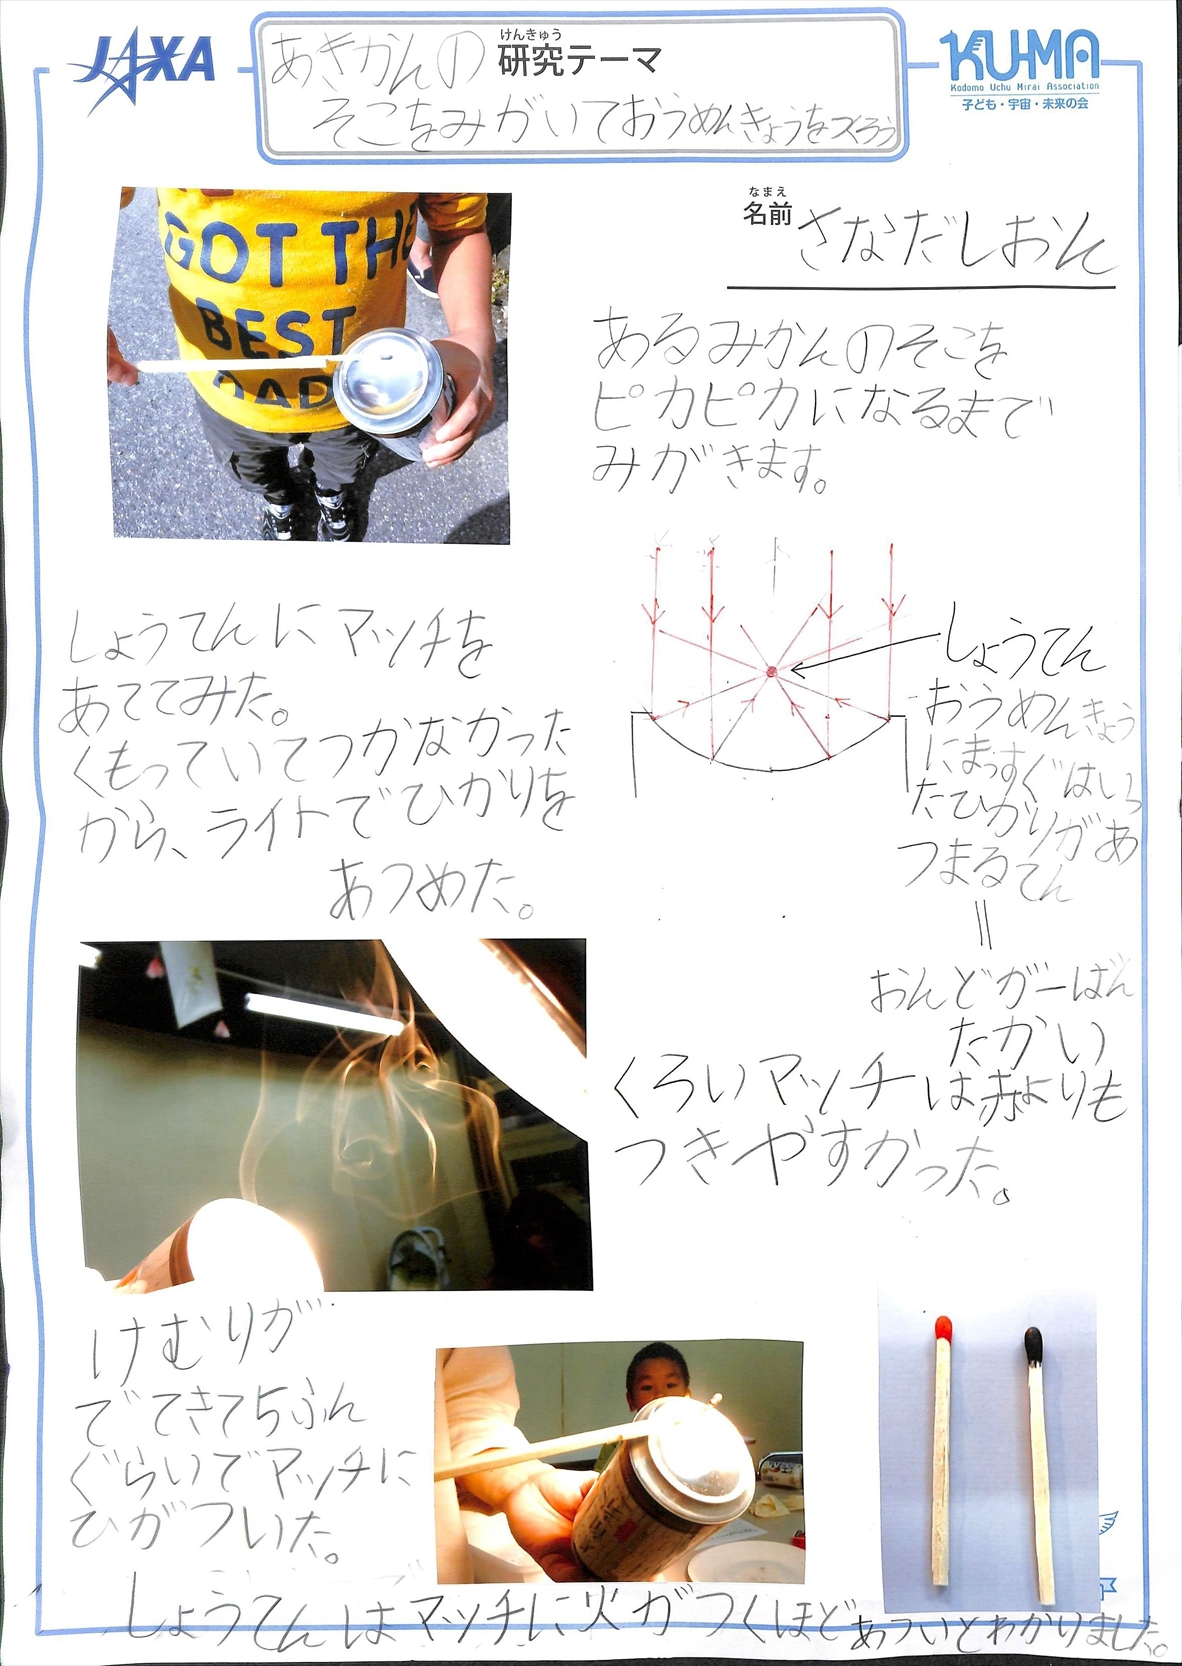 JAXA
けんきゅう
研究テーマ
あきかんの
そこをみがいておうめんきょうをつくろう
KU-MA
Kodomo Uchu Mirai Association
子ども・宇宙・未来の会
なまえ
名前
さなだしおん
GOT THE
BEST
DAD
あるみかんのそこを
ピカピカになるまで
みがきます。
しょうてんにマッチを
あててみた。
くもっていてつかなかった
から、ライトでひかりを
あつめた。
しょうてん
おうめんきょう
にまっすぐはいっ
たひかりがあ
つまるてん
=
おんどが一ばん
たかい
くろいマッチは赤よりも
つきやすかった。
けむりが
でてきて5ふん
ぐらいでマッチに
ひがついた。
しょうてんはマッチに火がつくほどあついとわかりました。